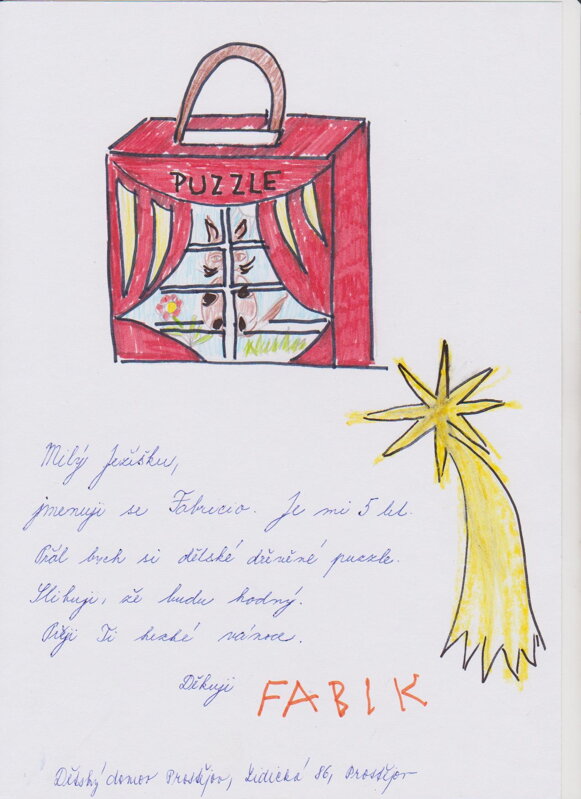 PUZZLE
Milý Ježíšku,
jmenuji se Fabricio. Je mi 5 let.
Přál bych si dětské dřevěné puzzle.
Slibuji, že budu hodný.
Přeji Ti hezké vánoce.
Děkuji FABIK
Dětský domov Prostějov, Lidická 86, Prostějov